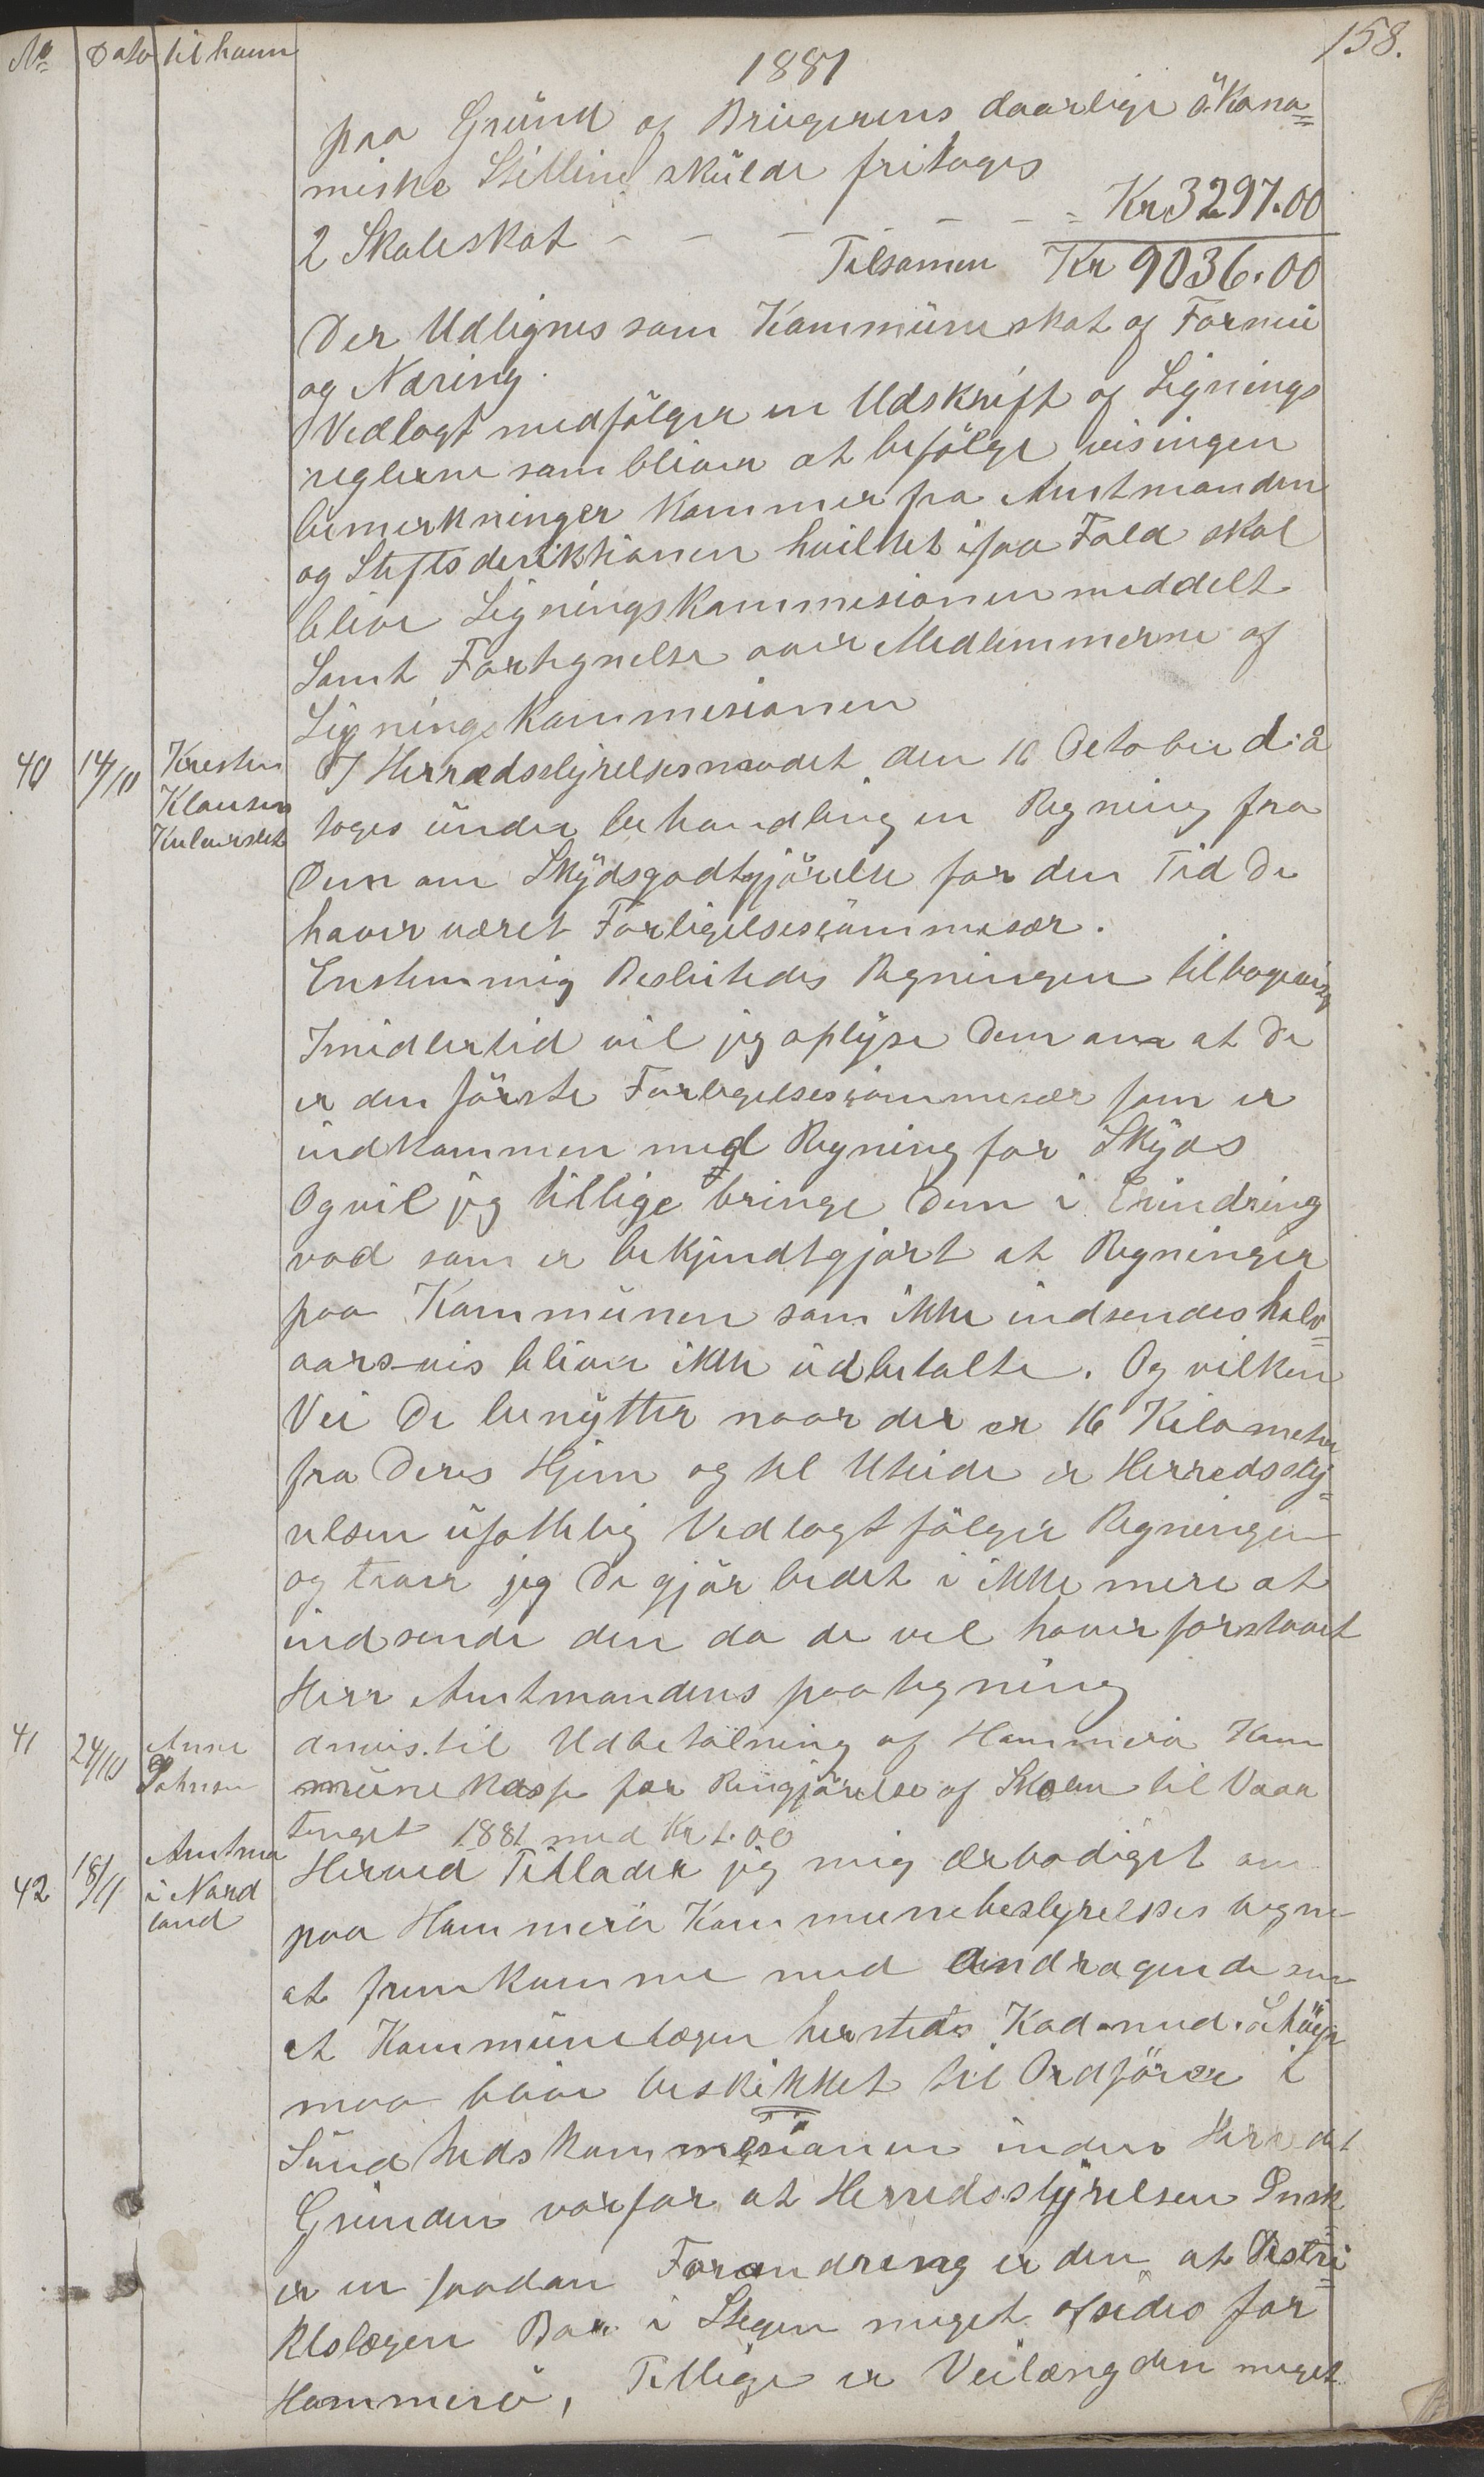 No Dato til hvem
1881
158.
paa Grund af Brugerens daarlige økono=
miske Stilling skulde fritages
2 Skoleskat - - - - - - Kr 3297.00
Tilsamen Kr 9036.00
Der Udlignes som Kommuneskat af Formue
og Næring.
Vedlagt medfølger en Udskrift af Lignings
reglerne som bliver at befølge vis ingen
bemerkninger kommer fra Amtmanden
og Stiftsderiktionen hvilket isaa Fald skal
blive Ligningskommisionen meddelt
Samt Fortegnelse over Medlemmerne af
Ligningskommisionen
40 14/10 Kresten Klausen
I Herredsstyrelsesmødet den 10 October d. å
toges under behandling en Regning fra
Dem om Skydsgodtgjørelse for den Tid De
haver været Forligelseskommisær.
Enstemmig Beslutedes Regningen tilbagevist
Imidlertid vil jeg oplyse Dem om at De
er den første Forligelseskommisær som er
indkommen med Regning for Skyds
Og vil jeg tillige bringe Dem i Erindring
vad som er bekjendtgjort at Regninger
paa Kommunen som ikke indsendes halv=
aarsvis bliver ikke udbetalte. Og vilken
Vei De benytter naar der er 16 Kilometer
fra Deres Hjem og til Uteide er Herredssty=
relsen ufattelig Vedlagt følger Regningen
og troer jeg De gjør bedst i ikke mere at
indsende den da de vel haver forstaaet
Herr Amtmandens paategning
41 24/10 Anne Johnsen
anvis. til Udbetalning af Hammerø Kom
munekasse for Rengjørelse af Skolen til Vaar
tinget 1881 med Kr 1.00
42 18/11 Amtma i Nord land
Herved Tillader jeg mig ærbødigst om
paa Hammerø Kommunebestyrelses vegne
at fremkomme med andragende om
at Kommunelægen hersteds Kad. med.
maa blive beskikket til Ordfører i
Sundhedskommisionen inden Herredet
Grunden vorfor at Herredsstyrelsen Ønsk
er en saadan Forandring er den at Distri=
ktslægen Bor i Stegen meget afsides for
Hammerø, Tillige er Veilængden meget